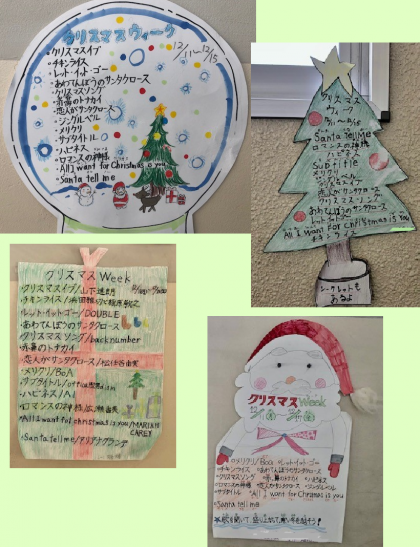 クリスマスウィーク
12/11~12/15
・クリスマスイブ
・チキンライス
・レット・イット・ゴー
・あわてんぼうのサンタクロース
・クリスマスソング
・赤鼻のトナカイ
・恋人がサンタクロース
・ジングルベル
・メリクリ
・サブタイトル
・ハピネス
・ロマンスの神様
・All I want for Christmas is you
・Santa tell me
クリスマス
ウィーク
Santa tell me
ロマンスの神様
ハピネス
Subtitle
メリクリ
ジングルベル
クリスマスイブ
恋人がサンタクロース
クリスマスソング
あわてんぼうのサンタクロース
レットイットゴー
All I want for Christmas is You
チキンライス
シークレットも
あるよ
クリスマスWeek
・クリスマスイブ/山下達郎
・チキンライス/浜田雅功と槇原敬之
・レット・イット・ゴー/DOUBLE
・あわてんぼうのサンタクロース
・クリスマスソング/backnumber
・赤鼻のトナカイ
・恋人がサンタクロース/松任谷由実
・メリクリ/BoA
・サブタイトル/official髭男dism
・ハピネス/AI
・ロマンスの神様/広瀬香美
・All I want for christmas is you/MARIAH
CAREY
・Santa tell me/アリアナグランデ
クリスマスWeek
・メリクリ/BoA ・レットイットゴー
・チキンライス ・あわてんぼうのサンタクロース
・クリスマスソング ・赤鼻のトナカイ ・ハピネス
・ロマンスの神様 ・恋人がサンタクロース ・ジングルベル
・サブタイトル ・All I want for Christmas is you
・Santa tell me